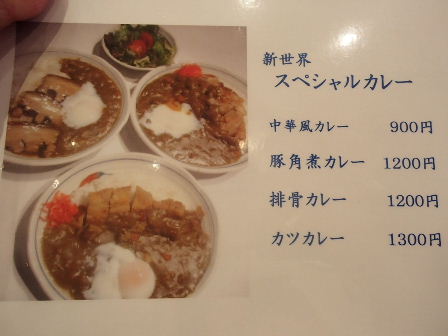 新世界
スペシャルカレー
中華風カレー 900円
豚角煮カレー 1200円
排骨カレー 1200円
カツカレー 1300円